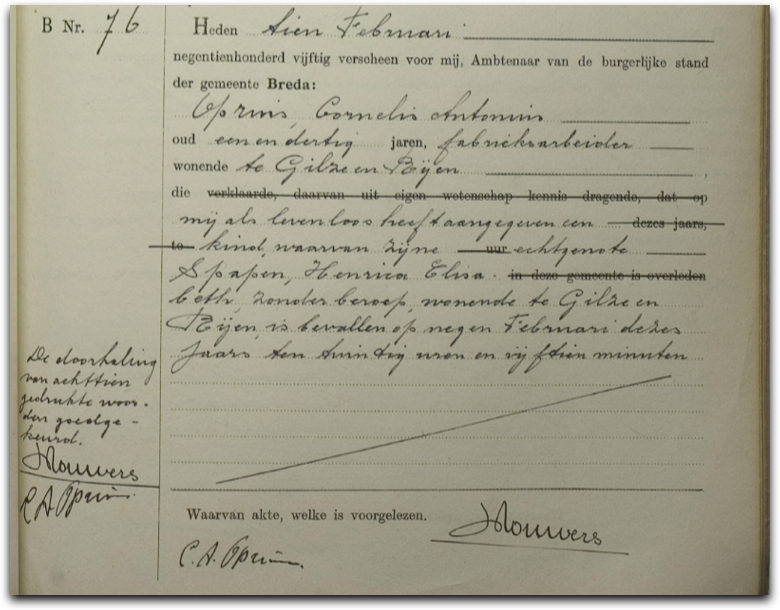 B Nr. 76
Heden tien Februari
negentienhonderd vijftig verscheen voor mij, Ambtenaar van de burgerlijke stand
der gemeente Breda:
Oprins, Cornelis Antonius
oud een en dertig jaren, fabrieksarbeider
wonende te Gilze en Rijen
die verklaarde, daarvan uit eigen wetenschap kennis dragende, dat op
mij als levenloos heeft aangegeven een dezes jaars,
te kind, waarvan zijne uur echtgenote
Spapen, Henrica Elisa in deze gemeente is overleden
beth, zonder beroep, wonende te Gilze en
Rijen, is bevallen op negen Februari dezes
jaars ten twintig uren en vijftien minuten
De doorhaling
van achttien
gedrukte woor-
den goedge-
keurd.
C A Oprins
Waarvan akte, welke is voorgelezen.
C. A. Oprins